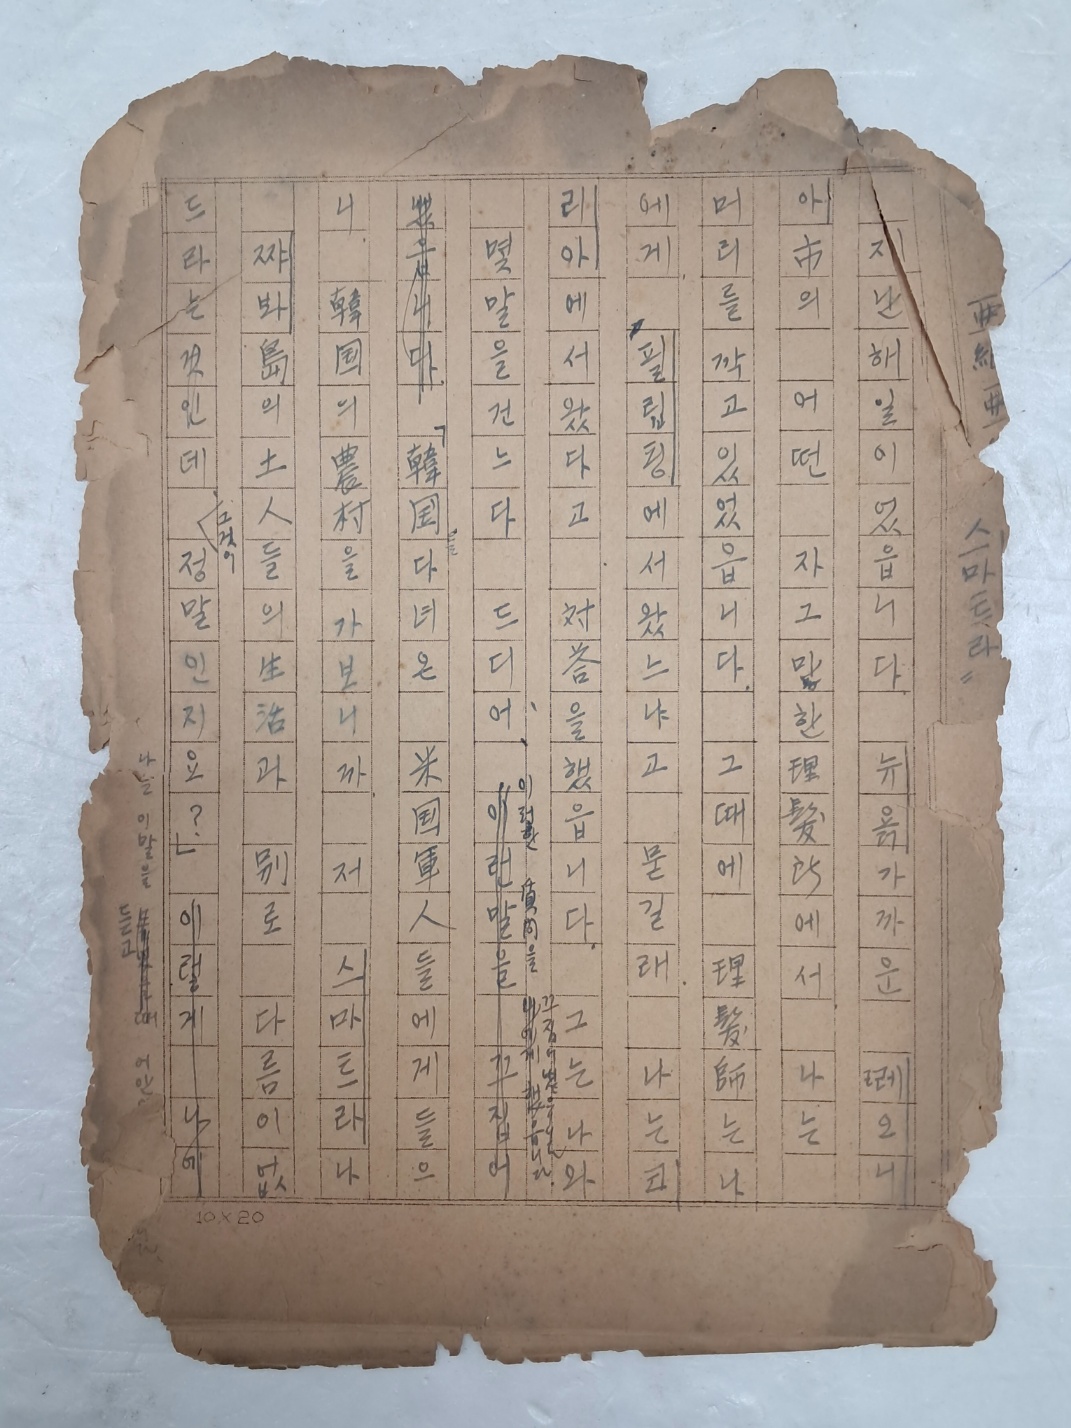 亜細亜
시마트라〃
지난해일이었읍니다. 뉴욝가까운 뢔레오니
아市의 어떤 자그만한理髮所에서 나는
머리를깍고있었읍니다. 그때에 理髮師는나
에게. 필립핑에서왔느냐고 묻길래. 나는코
리아에서왔다고. 対答을했읍니다. 그는나와
몇말을건느다 드디어, 이런말을 끄집어
이러한 質問을 끄집어
내에게 했읍니다.
했읍니다. 「韓国다녀온 米国軍人들에게들으
니. 韓国의農村을가보니까. 저 싀마트라나
쨔봐島의土人들의生活과 別로 다름이없
드라는것인데 그것이 정말인지요?」 이렇게 나에
나는 이말을 듣고
10×20